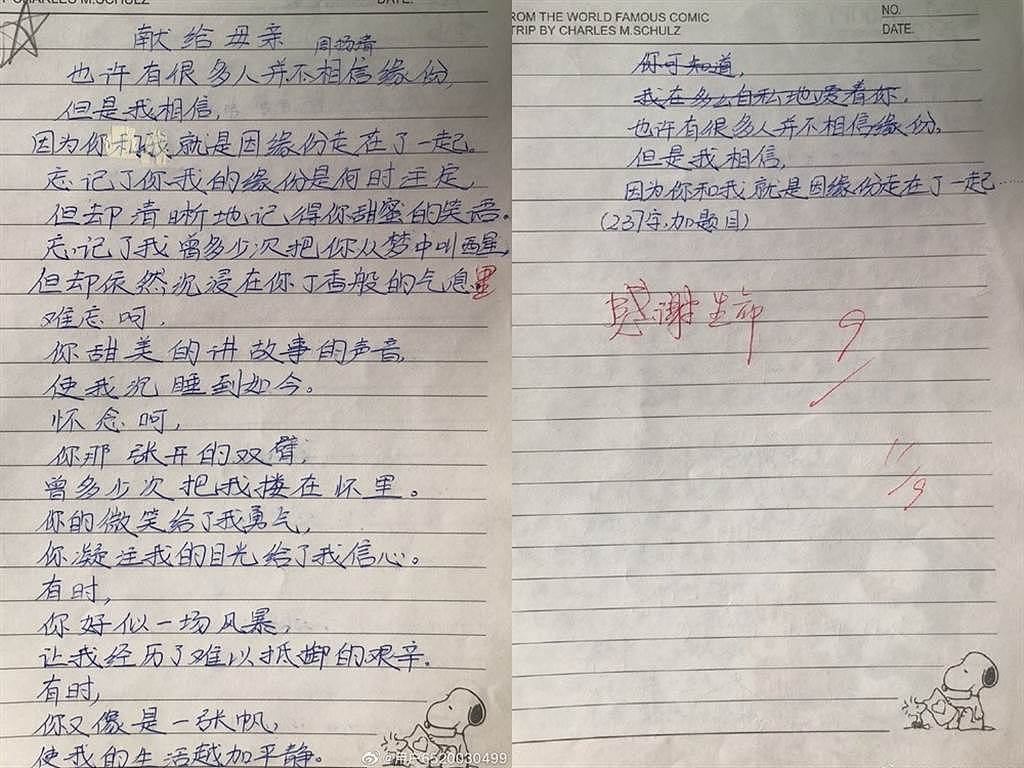 CHARLES M.SCHULZ
DATE.
献给母亲 周扬清
也许有很多人并不相信缘份,
但是我相信,
因为你和我就是因缘份走在了一起。
忘记了你我的缘份是何时注定,
但却清晰地记得你甜蜜的笑语。
忘记了我曾多少次把你从梦中叫醒,
但却依然沉浸在你丁香般的气息里
难忘呵,
你甜美的讲故事的声音,
使我沉睡到如今。
怀念呵,
你那张开的双臂,
曾多少次把我搂在怀里。
你的微笑给了我勇气,
你凝注我的目光给了我信心。
有时,
你好似一场风暴,
让我经历了难以抵御的艰辛.
有时,
你又像是一张帆,
使我的生活越加平静。
@用户6520030499
FROM THE WORLD FAMOUS COMIC
STRIP BY CHARLES M.SCHULZ
NO.
DATE.
你可知道,
我在多么自私地爱着你,
也许有很多人并不相信缘份,
但是我相信,
因为你和我就是因缘份走在了一起……
(237字,加题目)
感谢生命
9
11/9